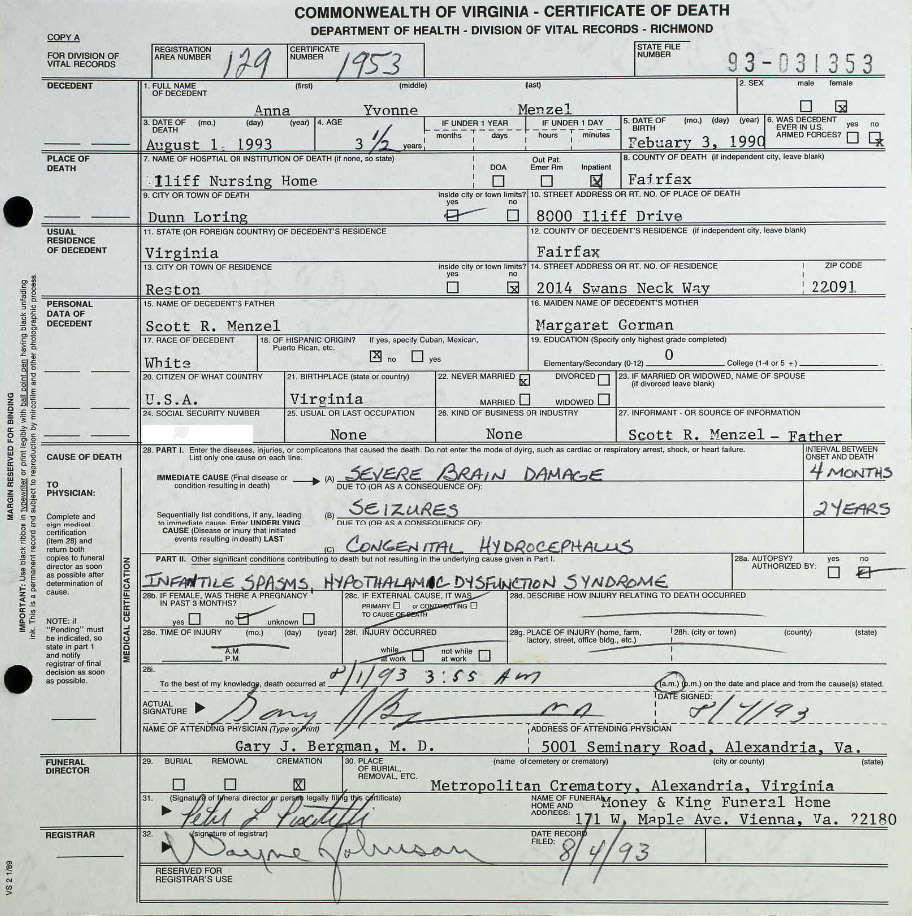 COMMONWEALTH OF VIRGINIA - CERTIFICATE OF DEATH
DEPARTMENT OF HEALTH - DIVISION OF VITAL RECORDS - RICHMOND
COPY A
FOR DIVISION OF VITAL RECORDS
REGISTRATION AREA NUMBER 129
CERTIFICATE NUMBER 1953
STATE FILE NUMBER 93-031353
DECEDENT
1. FULL NAME OF DECEDENT (first) (middle) (last)
Anna Yvonne Menzel
2. SEX male female
3. DATE OF DEATH (mo.) (day) (year)
August 1, 1993
4. AGE
3 1/2 years
IF UNDER 1 YEAR months days
IF UNDER 1 DAY hours minutes
5. DATE OF BIRTH (mo.) (day) (year)
Febuary 3, 1990
6. WAS DECEDENT EVER IN U.S. ARMED FORCES? yes no
PLACE OF DEATH
7. NAME OF HOSPTIAL OR INSTITUTION OF DEATH (if none, so state)
Iliff Nursing Home
DOA Out Pat. Emer Rm Inpatient
8. COUNTY OF DEATH (if independent city, leave blank)
Fairfax
9. CITY OR TOWN OF DEATH
Dunn Loring
inside city or town limits? yes no
10. STREET ADDRESS OR RT. NO. OF PLACE OF DEATH
8000 Iliff Drive
USUAL RESIDENCE OF DECEDENT
11. STATE (OR FOREIGN COUNTRY) OF DECEDENT'S RESIDENCE
Virginia
12. COUNTY OF DECEDENT'S RESIDENCE (if independent city, leave blank)
Fairfax
13. CITY OR TOWN OF RESIDENCE
Reston
inside city or town limits? yes no
14. STREET ADDRESS OR RT. NO. OF RESIDENCE
2014 Swans Neck Way
ZIP CODE
22091
PERSONAL DATA OF DECEDENT
15. NAME OF DECEDENT'S FATHER
Scott R. Menzel
16. MAIDEN NAME OF DECEDENT'S MOTHER
Margaret Gorman
17. RACE OF DECEDENT
White
18. OF HISPANIC ORIGIN? If yes, specify Cuban, Mexican, Puerto Rican, etc.
no yes
19. EDUCATION (Specify only highest grade completed)
Elementary/Secondary (0-12) 0 College (1-4 or 5 +)
20. CITIZEN OF WHAT COUNTRY
U.S.A.
21. BIRTHPLACE (state or country)
Virginia
22. NEVER MARRIED DIVORCED
MARRIED WIDOWED
23. IF MARRIED OR WIDOWED, NAME OF SPOUSE (if divorced leave blank)
24. SOCIAL SECURITY NUMBER
25. USUAL OR LAST OCCUPATION
None
26. KIND OF BUSINESS OR INDUSTRY
None
27. INFORMANT - OR SOURCE OF INFORMATION
Scott R. Menzel - Father
CAUSE OF DEATH
TO PHYSICIAN:
Complete and sign medical certification (item 28) and return both copies to funeral director as soon as possible after determination of cause.
NOTE: if "Pending" must be indicated, so state in part 1 and notify registrar of final decision as soon as possible.
MEDICAL CERTIFICATION
28. PART I. Enter the diseases, injuries, or complicatons that caused the death. Do not enter the mode of dying, such as cardiac or respiratory arrest, shock, or heart failure. List only one cause on each line.
INTERVAL BETWEEN ONSET AND DEATH
IMMEDIATE CAUSE (Final disease or condition resulting in death)
(A) SEVERE BRAIN DAMAGE 4 MONTHS
DUE TO (OR AS A CONSEQUENCE OF):
Sequentially list conditions, if any, leading to immediate cause. Enter UNDERLYING CAUSE (Disease or injury that initiated events resulting in death) LAST
(B) SEIZURES 2 YEARS
DUE TO (OR AS A CONSEQUENCE OF):
(C) CONGENITAL HYDROCEPHALUS
PART II. Other significant conditions contributing to death but not resulting in the underlying cause given in Part I.
INFANTILE SPASMS, HYPOTHALAMIC DYSFUNCTION SYNDROME
28a. AUTOPSY? AUTHORIZED BY: yes no
28b. IF FEMALE, WAS THERE A PREGNANCY IN PAST 3 MONTHS?
yes no unknown
28c. IF EXTERNAL CAUSE, IT WAS
PRIMARY or CONTRIBUTING TO CAUSE OF DEATH
28d. DESCRIBE HOW INJURY RELATING TO DEATH OCCURRED
28e. TIME OF INJURY (mo.) (day) (year)
A.M.
P.M.
28f. INJURY OCCURRED
while at work not while at work
28g. PLACE OF INJURY (home, farm, factory, street, office bldg., etc.)
28h. (city or town) (county) (state)
28i.
To the best of my knowledge, death occurred at 8/1/93 3:55 AM (a.m.) (p.m.) on the date and place and from the cause(s) stated.
ACTUAL SIGNATURE
MD
DATE SIGNED:
8/4/93
NAME OF ATTENDING PHYSICIAN (Type or Print)
Gary J. Bergman, M. D.
ADDRESS OF ATTENDING PHYSICIAN
5001 Seminary Road, Alexandria, Va.
FUNERAL DIRECTOR
29. BURIAL REMOVAL CREMATION
30. PLACE OF BURIAL, REMOVAL, ETC. (name of cemetery or crematory) (city or county) (state)
Metropolitan Crematory, Alexandria, Virginia
31. (Signature of funeral director or person legally filing this certificate)
NAME OF FUNERAL HOME AND ADDRESS:
Money & King Funeral Home
171 W. Maple Ave. Vienna, Va. 22180
REGISTRAR
32. (signature of registrar)
Wayne Johnson
DATE RECORD FILED:
8/4/93
RESERVED FOR REGISTRAR'S USE
VS 2 1/89
MARGIN RESERVED FOR BINDING
IMPORTANT: Use black ribbon in typewriter or print legibly with ball point pen having black unfading ink. This is a permanent record and subject to reproduction by mircofilm and other photographic process.